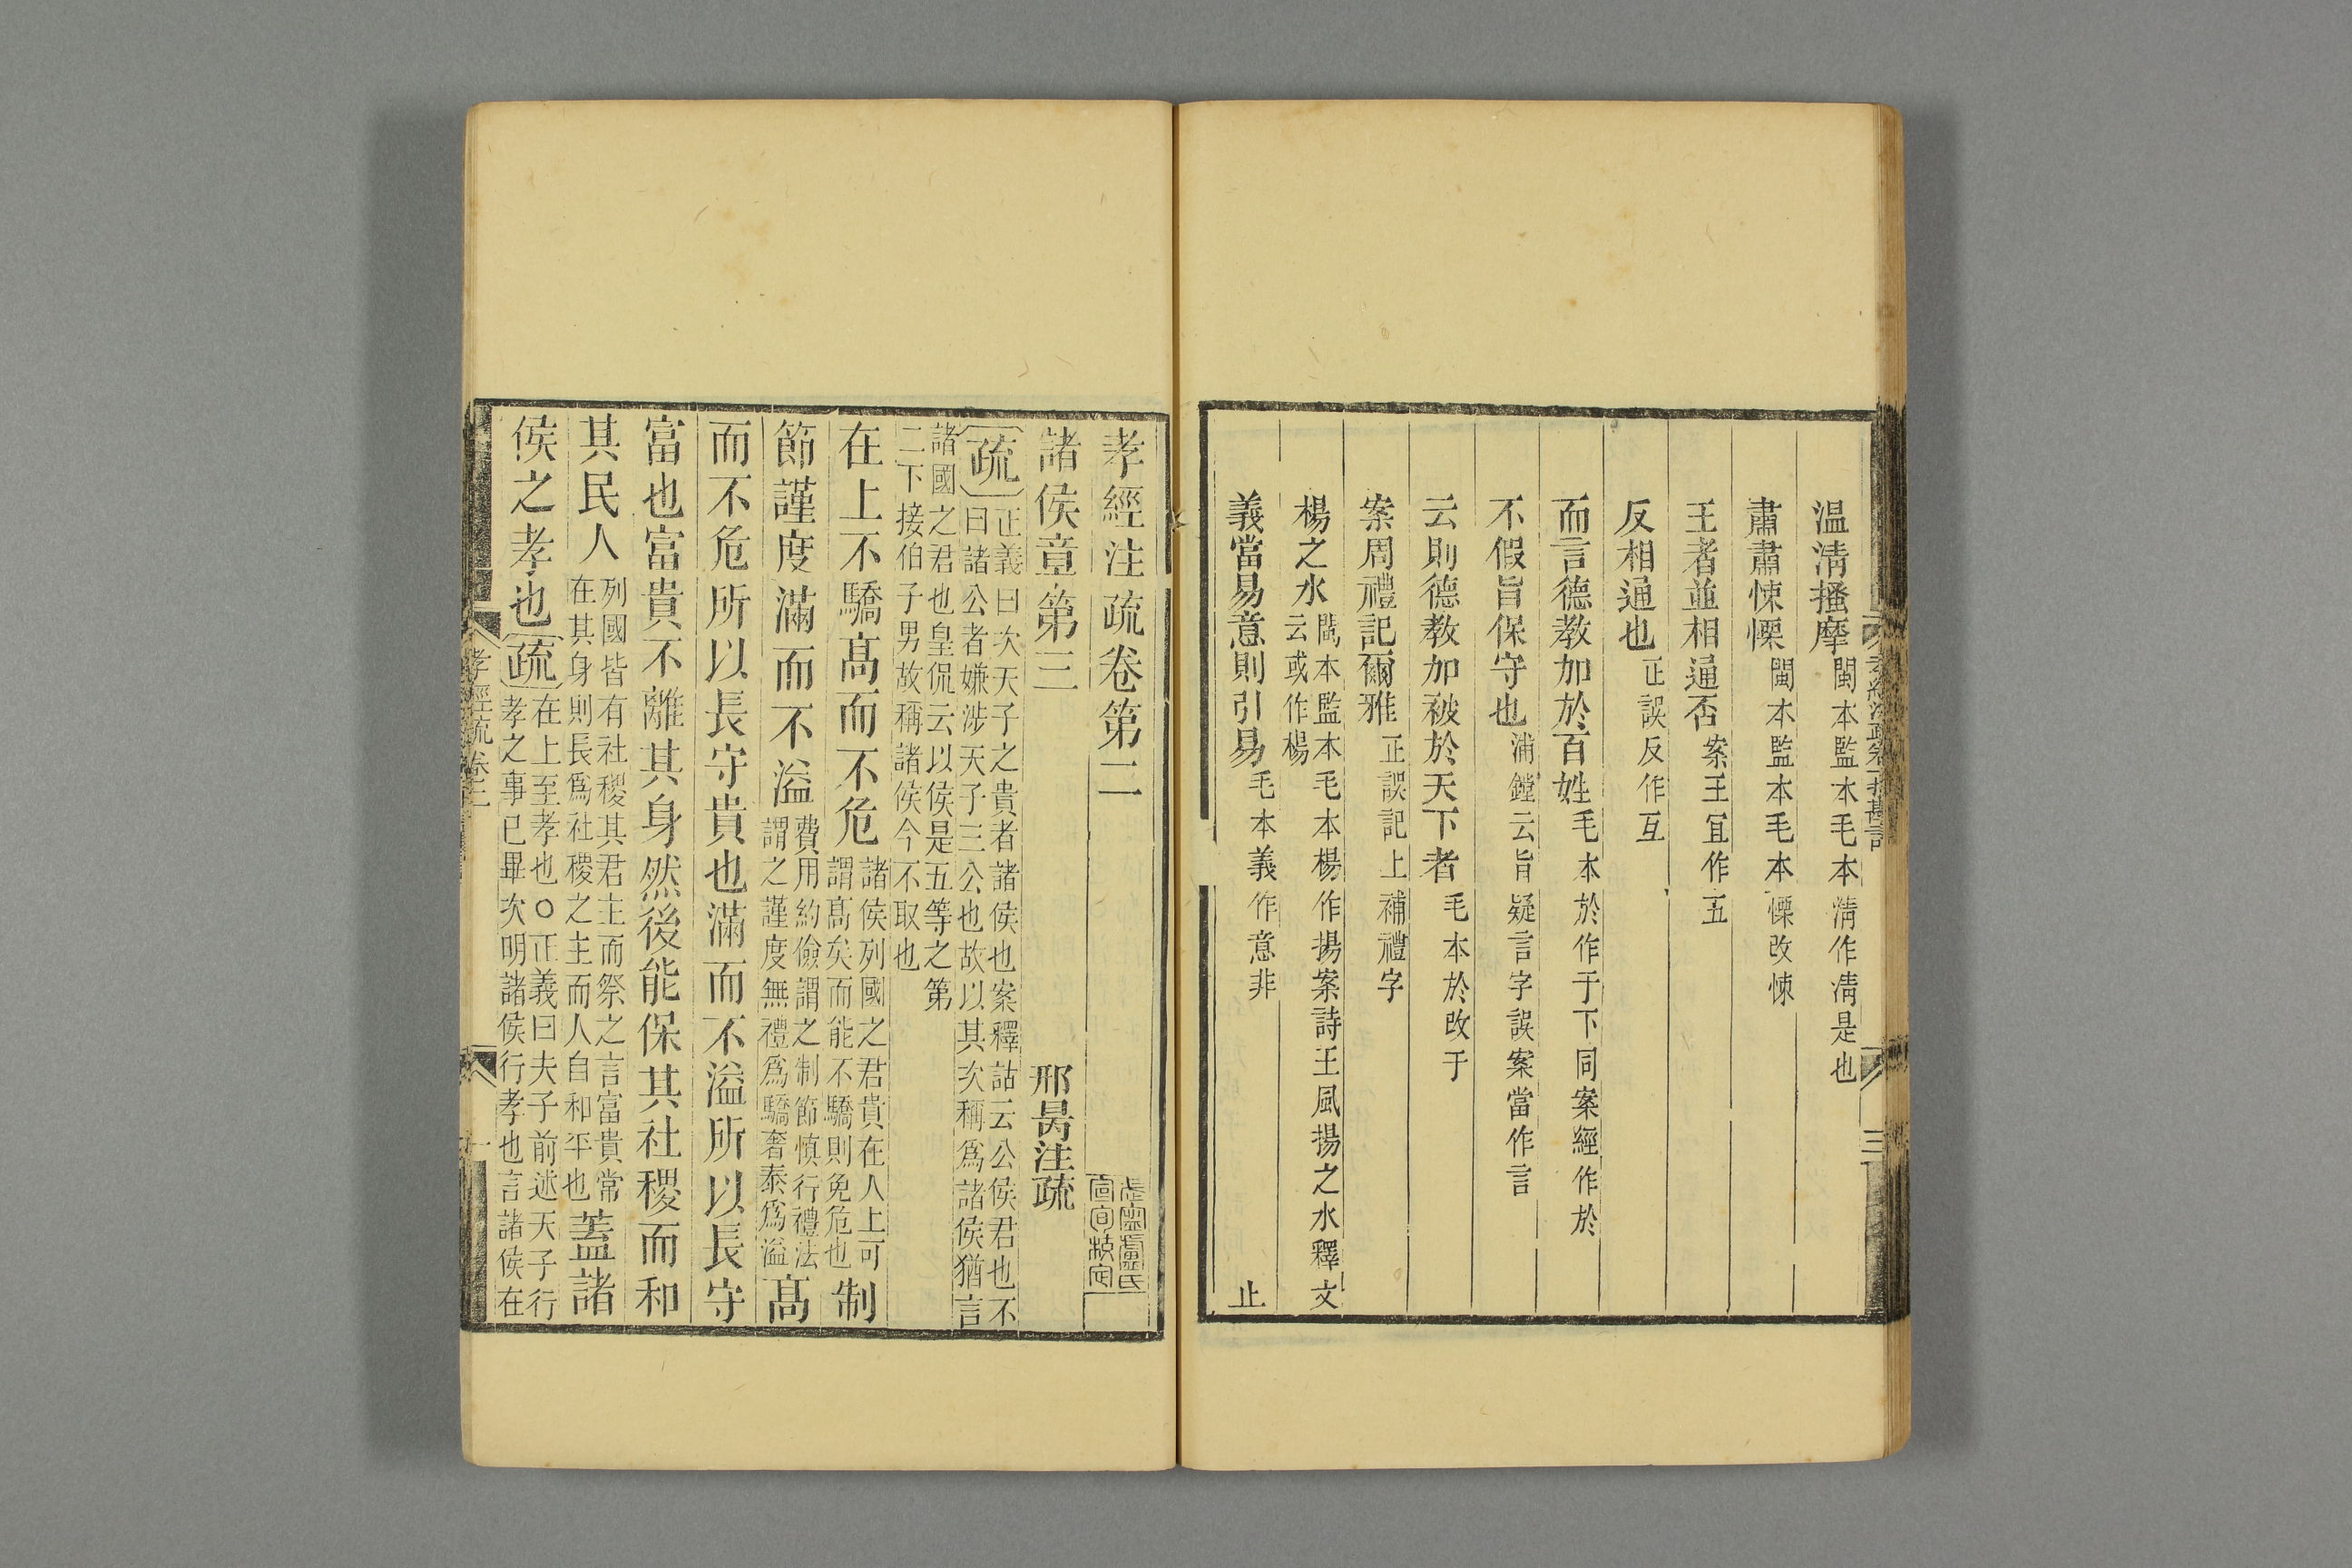 温淸搔摩閩本監本毛本淸作凊是也
肅肅悚慄閩本監本毛本慄改悚
王者並相通否案王宜作五
反相通也正誤反作互
而言德教加於百姓毛本於作于下同案經作於
不假旨保守也浦鏜云旨疑言字誤案當作言
云則德教加被於天下者毛本於改于
案周禮記爾雅正誤記上補禮字
楊之水閩本監本毛本楊作揚案詩王風揚之水釋文
云或作楊
義當易意則引易毛本義作意非
止
三
孝經注疏卷第二
諸侯章第三
邢昺注疏
疏正義曰次天子之貴者諸侯也案釋詁云公侯君也不
曰諸公者嫌涉天子三公也故以其次稱爲諸侯猶言
諸國之君也皇侃云以侯是五等之第
二下接伯子男故稱諸侯今不取也
在上不驕髙而不危
諸侯列國之君貴在人上可
謂髙矣而能不驕則免危也
制
節謹度滿而不溢
費用約儉謂之制節慎行禮法
謂之謹度無禮爲驕奢泰爲溢
髙
而不危所以長守貴也滿而不溢所以長守
富也富貴不離其身然後能保其社稷而和
其民人
列國皆有社稷其君主而祭之言富貴常
在其身則長爲社稷之主而人自和平也
蓋諸
侯之孝也
疏在上至孝也○正義曰夫子前述天子行
孝之事已畢次明諸侯行孝也言諸侯在
孝經疏卷二
一